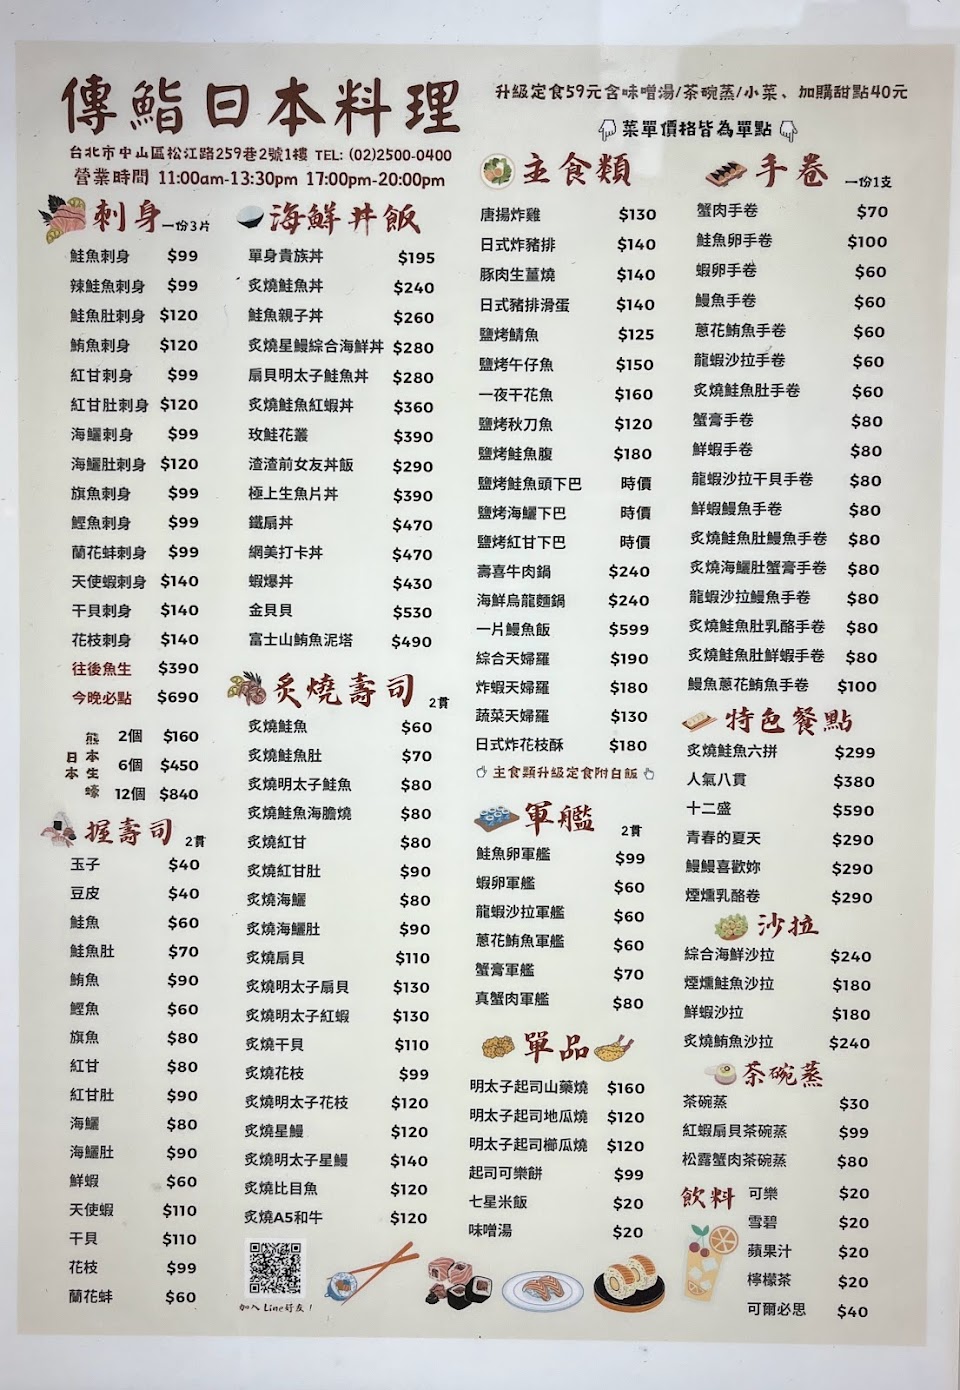 傳鮨日本料理
台北市中山區松江路259巷2號1樓 TEL: (02)2500-0400
營業時間 11:00am-13:30pm 17:00pm-20:00pm
升級定食59元含味噌湯/茶碗蒸/小菜、加購甜點40元
菜單價格皆為單點
刺身 一份3片
鮭魚刺身 $99
辣鮭魚刺身 $99
鮭魚肚刺身 $120
鮪魚刺身 $120
紅甘刺身 $99
紅甘肚刺身 $120
海鱺刺身 $99
海鱺肚刺身 $120
旗魚刺身 $99
鰹魚刺身 $99
蘭花蚌刺身 $99
天使蝦刺身 $140
干貝刺身 $140
花枝刺身 $140
往後魚生 $390
今晚必點 $690
日本熊本生蠔
2個 $160
6個 $450
12個 $840
握壽司 2貫
玉子 $40
豆皮 $40
鮭魚 $60
鮭魚肚 $70
鮪魚 $90
鰹魚 $60
旗魚 $80
紅甘 $80
紅甘肚 $90
海鱺 $80
海鱺肚 $90
鮮蝦 $60
天使蝦 $110
干貝 $110
花枝 $99
蘭花蚌 $60
海鮮丼飯
單身貴族丼 $195
炙燒鮭魚丼 $240
鮭魚親子丼 $260
炙燒星鰻綜合海鮮丼 $280
扇貝明太子鮭魚丼 $280
炙燒鮭魚紅蝦丼 $360
玫鮭花叢 $390
渣渣前女友丼飯 $290
極上生魚片丼 $390
鐵扇丼 $470
網美打卡丼 $470
蝦爆丼 $430
金貝貝 $530
富士山鮪魚泥塔 $490
炙燒壽司 2貫
炙燒鮭魚 $60
炙燒鮭魚肚 $70
炙燒明太子鮭魚 $80
炙燒鮭魚海膽燒 $80
炙燒紅甘 $80
炙燒紅甘肚 $90
炙燒海鱺 $80
炙燒海鱺肚 $90
炙燒扇貝 $110
炙燒明太子扇貝 $130
炙燒明太子紅蝦 $130
炙燒干貝 $110
炙燒花枝 $99
炙燒明太子花枝 $120
炙燒星鰻 $120
炙燒明太子星鰻 $140
炙燒比目魚 $120
炙燒A5和牛 $120
加入Line好友！
主食類
唐揚炸雞 $130
日式炸豬排 $140
豚肉生薑燒 $140
日式豬排滑蛋 $140
鹽烤鯖魚 $125
鹽烤午仔魚 $150
一夜干花魚 $160
鹽烤秋刀魚 $120
鹽烤鮭魚腹 $180
鹽烤鮭魚頭下巴 時價
鹽烤海鱺下巴 時價
鹽烤紅甘下巴 時價
壽喜牛肉鍋 $240
海鮮烏龍麵鍋 $240
一片鰻魚飯 $599
綜合天婦羅 $190
炸蝦天婦羅 $180
蔬菜天婦羅 $130
日式炸花枝酥 $180
主食類升級定食附白飯
軍艦 2貫
鮭魚卵軍艦 $99
蝦卵軍艦 $60
龍蝦沙拉軍艦 $60
蔥花鮪魚軍艦 $60
蟹膏軍艦 $70
真蟹肉軍艦 $80
單品
明太子起司山藥燒 $160
明太子起司地瓜燒 $120
明太子起司櫛瓜燒 $120
起司可樂餅 $99
七星米飯 $20
味噌湯 $20
手卷 一份1支
蟹肉手卷 $70
鮭魚卵手卷 $100
蝦卵手卷 $60
鰻魚手卷 $60
蔥花鮪魚手卷 $60
龍蝦沙拉手卷 $60
炙燒鮭魚肚手卷 $60
蟹膏手卷 $80
鮮蝦手卷 $80
龍蝦沙拉干貝手卷 $80
鮮蝦鰻魚手卷 $80
炙燒鮭魚肚鰻魚手卷 $80
炙燒海鱺肚蟹膏手卷 $80
龍蝦沙拉鰻魚手卷 $80
炙燒鮭魚肚乳酪手卷 $80
炙燒鮭魚肚鮮蝦手卷 $80
鰻魚蔥花鮪魚手卷 $100
特色餐點
炙燒鮭魚六拼 $299
人氣八貫 $380
十二盛 $590
青春的夏天 $290
鰻鰻喜歡妳 $290
煙燻乳酪卷 $290
沙拉
綜合海鮮沙拉 $240
煙燻鮭魚沙拉 $180
鮮蝦沙拉 $180
炙燒鮪魚沙拉 $240
茶碗蒸
茶碗蒸 $30
紅蝦扇貝茶碗蒸 $99
松露蟹肉茶碗蒸 $80
飲料
可樂 $20
雪碧 $20
蘋果汁 $20
檸檬茶 $20
可爾必思 $40